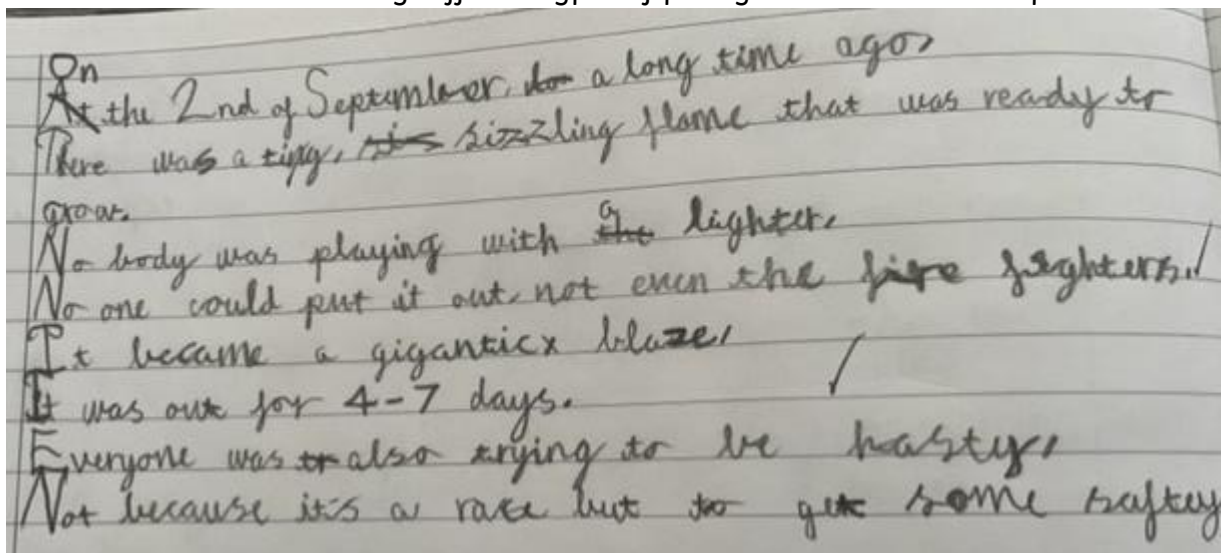 On
At the 2nd of September, to a long time ago,
There was a tiny, sis sizzling flame that was ready to
grow.
No body was playing with the a lighter,
No one could put it out, not even the fire fighters.
It became a gigantic blaze,
It was out for 4-7 days.
Everyone was tr also trying to be hasty,
Not because it's a race but to get some saftey